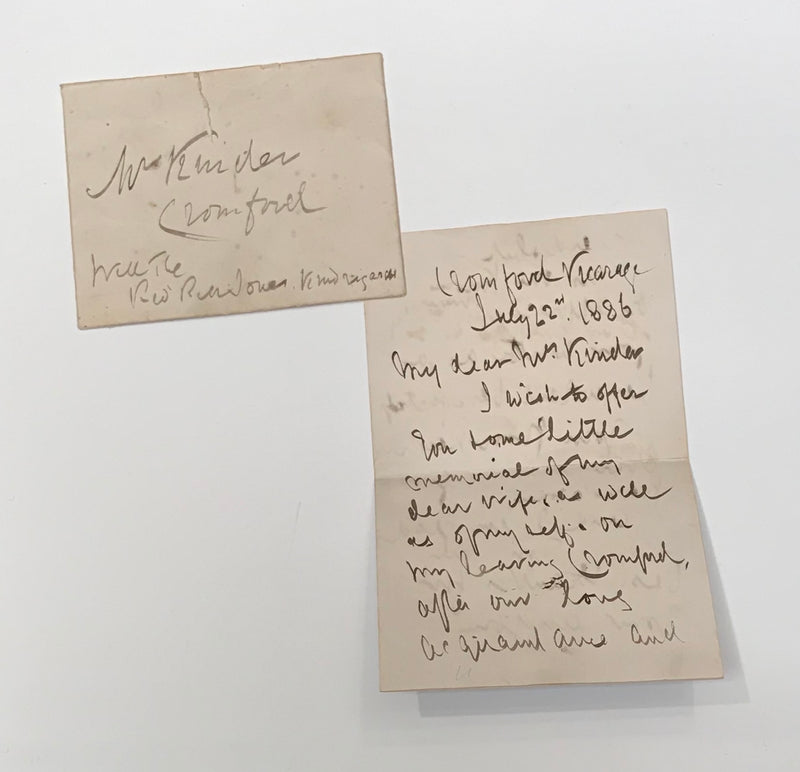 Mrs Kinder
Cromford
With The
Revd R Jones. Kind regards
Cromford Vicarage
July 22nd. 1886
My dear Mrs Kinder
I wish to offer
you some little
memorial of my
dear wife, as well
as of myself. on
my leaving Cromford,
after our long
acquaintance and